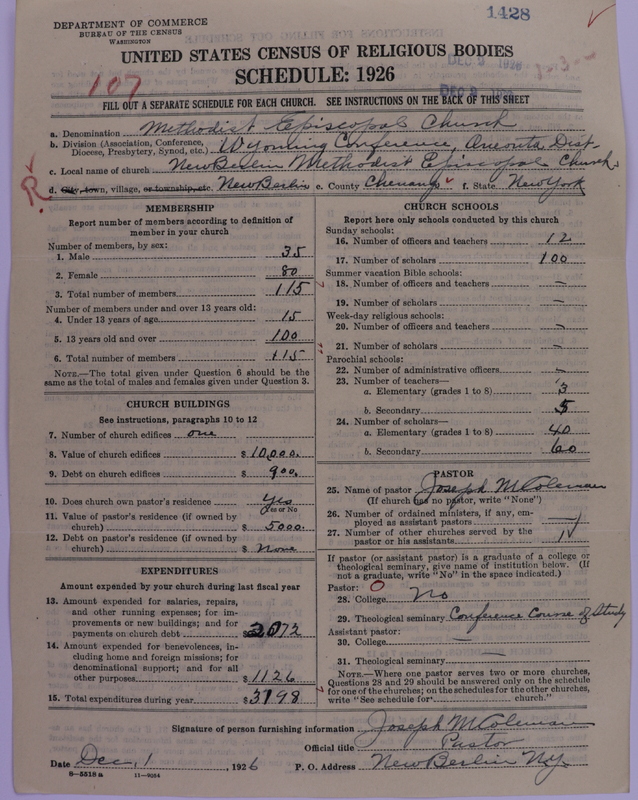 1428
DEPARTMENT OF COMMERCE
BUREAU OF THE CENSUS
WASHINGTON
UNITED STATES CENSUS OF RELIGIOUS BODIES
DEC 9 1926
SCHEDULE: 1926
107
FILL OUT A SEPARATE SCHEDULE FOR EACH CHURCH. SEE INSTRUCTIONS ON THE BACK OF THIS SHEET
a. Denomination Methodist Episcopal Church
b. Division (Association, Conference, Diocese, Presbytery, Synod, etc.) Wyoming Conference, Oneonta Dist.
c. Local name of church New Berlin Methodist Episcopal Church
d. City, town, village, or township, etc. New Berlin e. County Chenango f. State New York
R.
MEMBERSHIP
Report number of members according to definition of
member in your church
Number of members, by sex:
1. Male 35
2. Female 80
3. Total number of members 115
Number of members under and over 13 years old:
4. Under 13 years of age 15
5. 13 years old and over 100
6. Total number of members 115
NOTE.—The total given under Question 6 should be the
same as the total of males and females given under Question 3.
CHURCH BUILDINGS
See instructions, paragraphs 10 to 12
7. Number of church edifices one
8. Value of church edifices $10,000.
9. Debt on church edifices $900.
10. Does church own pastor's residence Yes
Yes or No
11. Value of pastor's residence (if owned by
church) $5000.
12. Debt on pastor's residence (if owned by
church) $None
EXPENDITURES
Amount expended by your church during last fiscal year
13. Amount expended for salaries, repairs,
and other running expenses; for im-
provements or new buildings; and for
payments on church debt $2072
14. Amount expended for benevolences, in-
cluding home and foreign missions; for
denominational support; and for all
other purposes $1126
15. Total expenditures during year $3198
CHURCH SCHOOLS
Report here only schools conducted by this church
Sunday schools:
16. Number of officers and teachers 12
17. Number of scholars 100
Summer vacation Bible schools:
18. Number of officers and teachers —
19. Number of scholars —
Week-day religious schools:
20. Number of officers and teachers —
21. Number of scholars —
Parochial schools:
22. Number of administrative officers —
23. Number of teachers—
a. Elementary (grades 1 to 8) 3
b. Secondary 5
24. Number of scholars—
a. Elementary (grades 1 to 8) 40
b. Secondary 60
PASTOR
25. Name of pastor Joseph M Coleman
(If church has no pastor, write "None")
26. Number of ordained ministers, if any, em-
ployed as assistant pastors —
27. Number of other churches served by the
pastor or his assistants 1
If pastor (or assistant pastor) is a graduate of a college or
theological seminary, give name of institution below. (If
not a graduate, write "No" in the space indicated.)
Pastor: O
28. College No
29. Theological seminary Conference Course of Study
Assistant pastor:
30. College —
31. Theological seminary —
NOTE.—Where one pastor serves two or more churches,
Questions 28 and 29 should be answered only on the schedule
for one of the churches; on the schedules for the other churches,
write "See schedule for church."
Signature of person furnishing information Joseph M Coleman
Official title Pastor
Date Dec, 1, 1926 P. O. Address New Berlin N.Y.
8—5518 a 11—9264